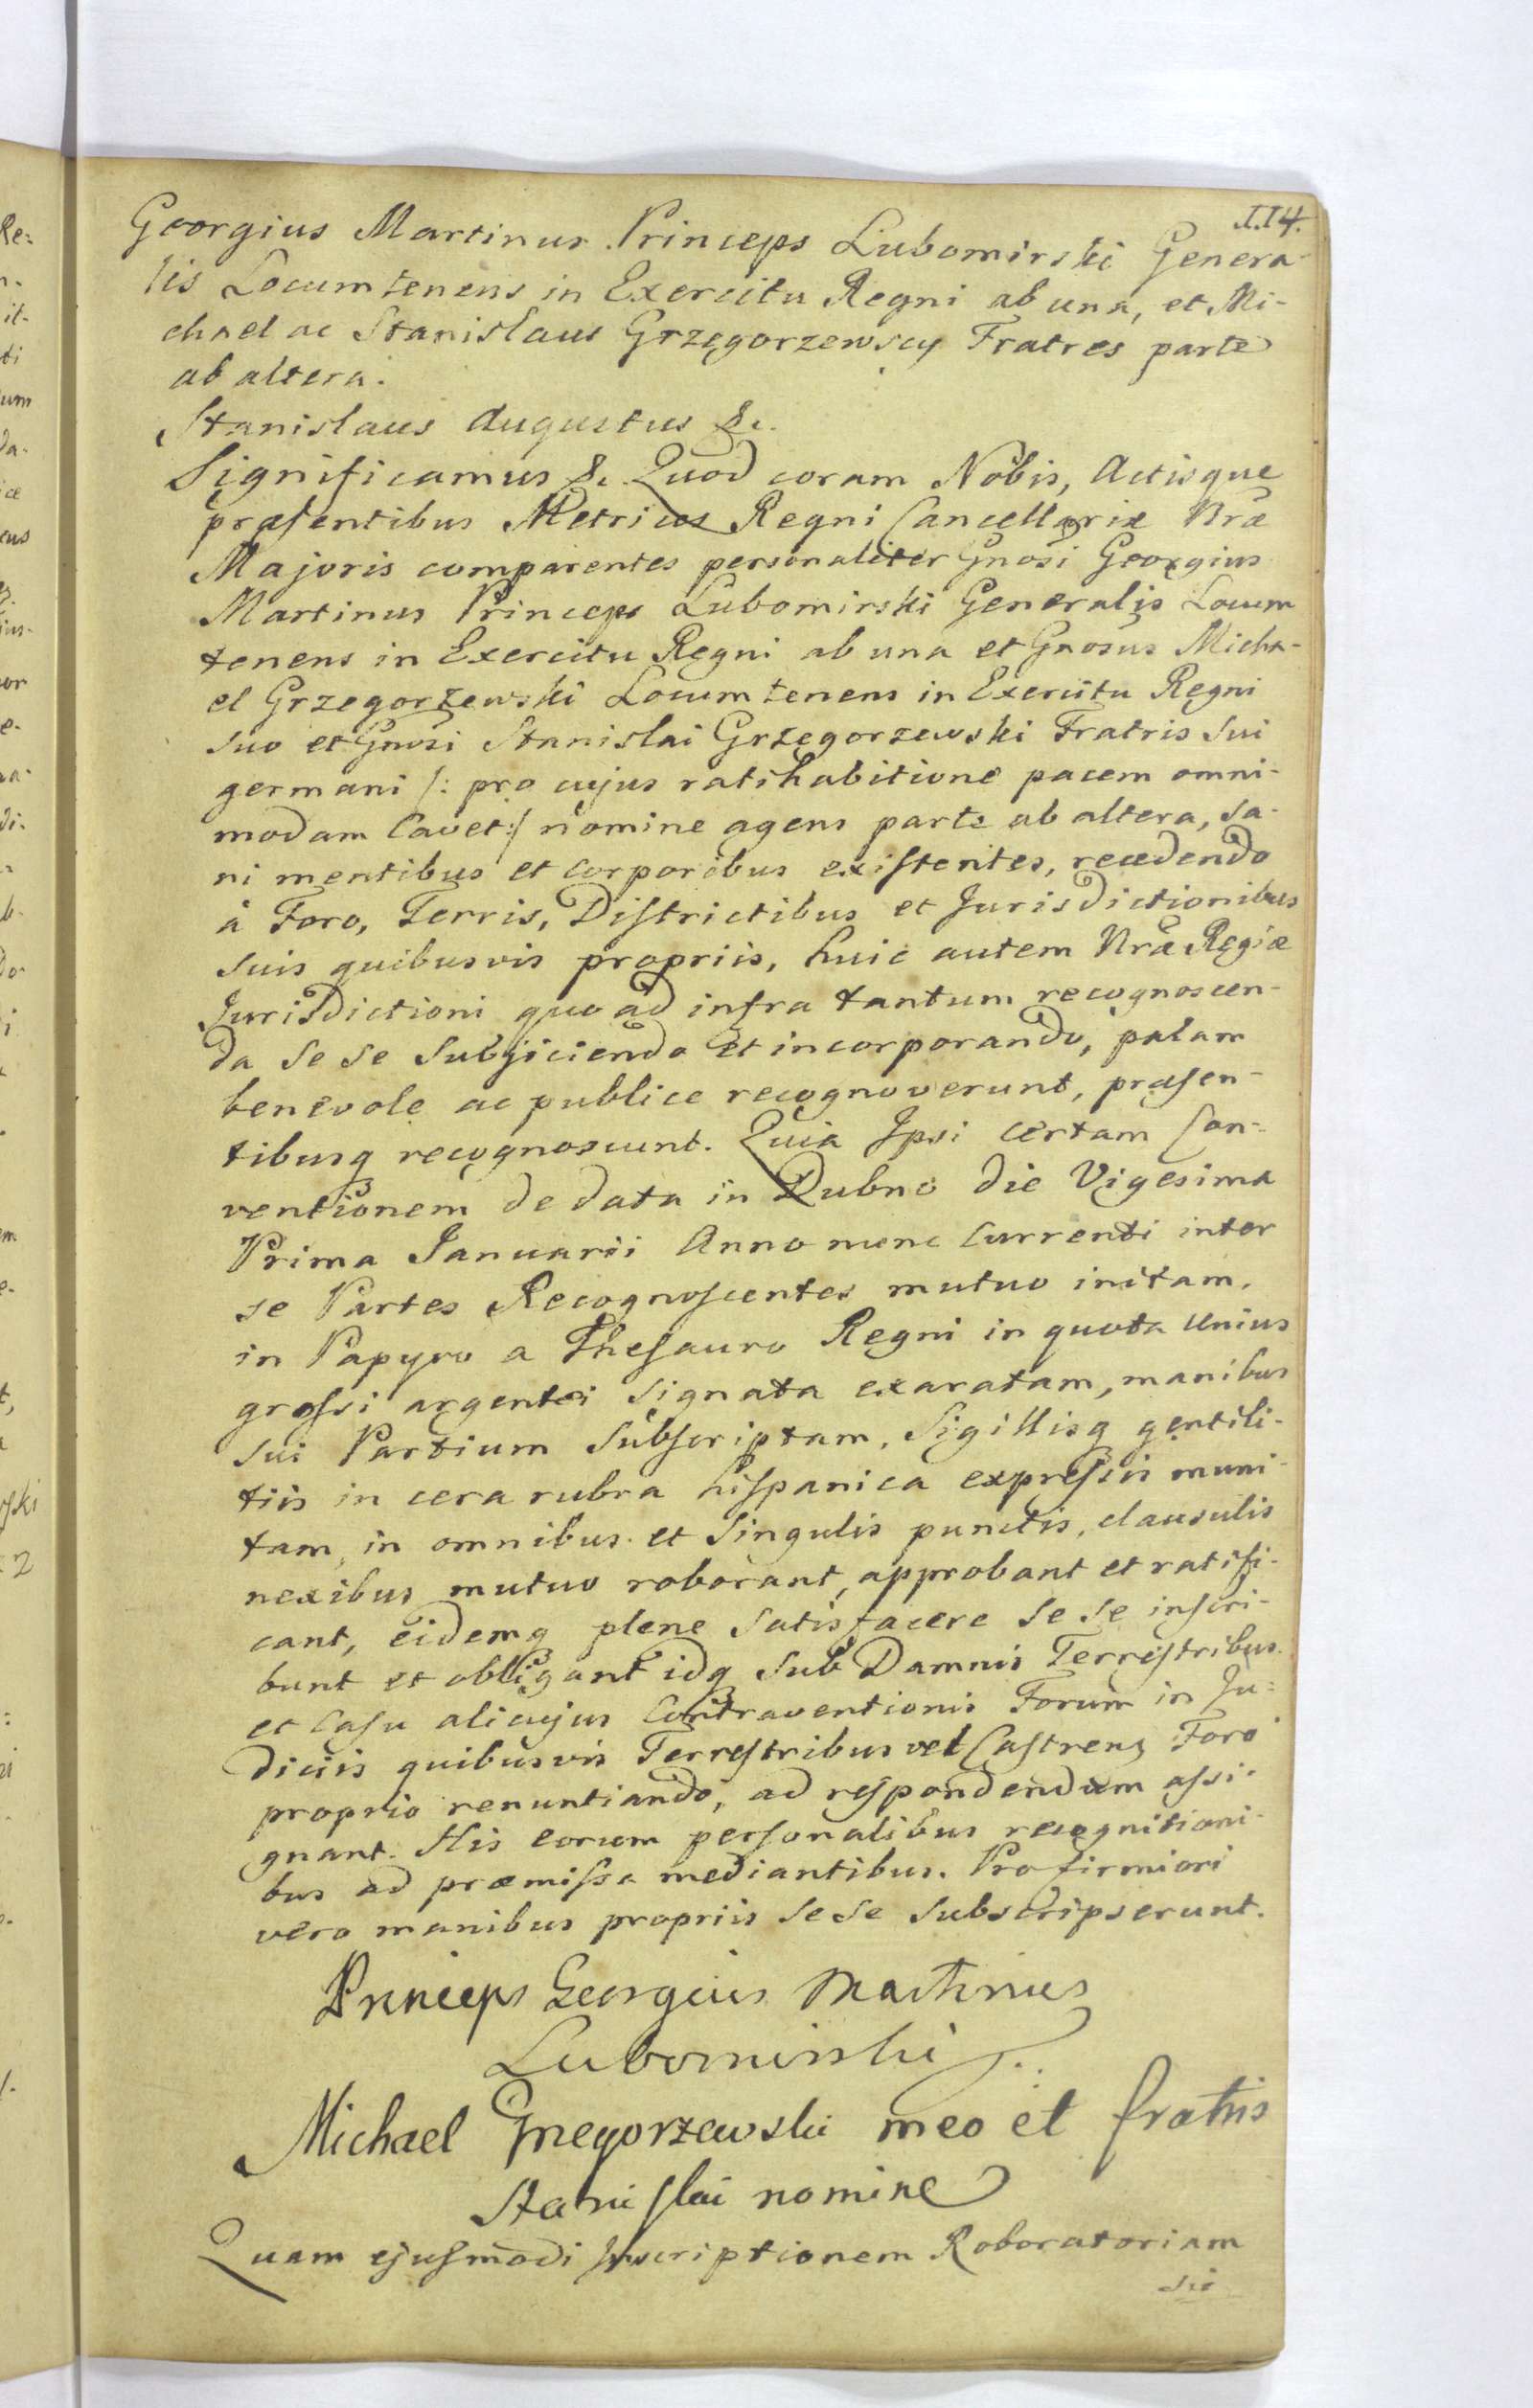 114.
Georgius Martinus Princeps Lubomirski Genera-
lis Locumtenens in Exercitu Regni ab una, et Mi-
chael ac Stanislaus Grzegorzewscy Fratres parte
ab altera.
Stanislaus Augustus &c.
Significamus &c. Quod coram Nobis, Actisque
præsentibus Metrices Regni Cancellariæ Nræ
Majoris comparentes personaliter Gnosi Georgius
Martinus Princeps Lubomirski Generalis Locum
tenens in Exercitu Regni ab una et Gnosus Micha-
el Grzegorzewski Locumtenens in Exercitu Regni
suo et Gnosi Stanislai Grzegorzewski Fratris sui
germani /: pro cujus ratihabitione pacem omni-
modam Cavet :/ nomine agens parte ab altera, sa-
ni mentibus et corporibus existentes, recedendo
à Foro, Terris, Districtibus et Jurisdictionibus
suis quibusvis propriis, huic autem Nræ Regiæ
Jurisdictioni quo ad infra tantum recognoscen-
da se se subjiciendo et incorporando, palam
benevole ac publice recognoverunt, præsen-
tibusq recognoscunt. Quia Ipsi certam Con-
ventionem de data in Dubno die Vigesima
Prima Januarii Anno nunc Currenti inter
se Partes Recognoscentes mutuo initam,
in Papyro a Thesauro Regni in quota unius
grossi argentei signata exaratam, manibus
sui Partium subscriptam, Sigillisq gentili-
tiis in cera rubra hispanica expressis muni-
tam, in omnibus et singulis punctis, clausulis
nexibus mutuo roborant, approbant et ratifi-
cant, eidemq plene satisfacere se se inscri-
bunt et obligant idq sub Damnis Terrestribus
et Casu alicujus Contraventionis Forum in Ju-
diciis quibusvis Terrestribus vel Castrens Foro
proprio renuntiando, ad respondendum assi-
gnant. His eorum personalibus recognitioni-
bus ad præmissa mediantibus. Pro firmiori
vero manibus propriis sese subscripserunt.
Princeps Georgius Martinus
Lubomirski
Michael Grzegorzewski meo et fratris
Stanislai nomine
Quam ejusmodi Inscriptionem Roboratoriam